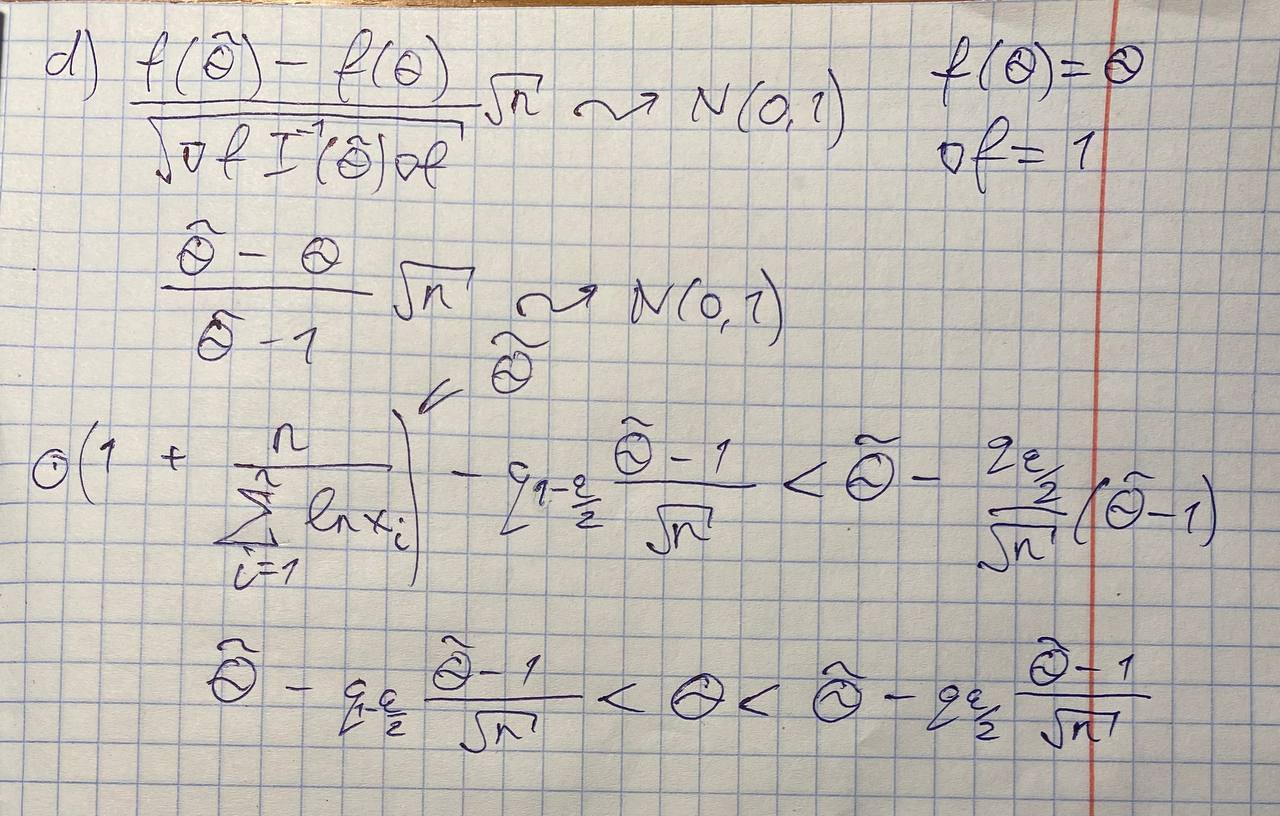 d) (f(θ̃) − f(θ)) / √(∇f I⁻¹(θ̃) ∇f) √n ⇝ N(0,1)   f(θ) = θ
∇f = 1
(θ̃ − θ) / (θ̃ − 1) √n ⇝ N(0,1)
↙ θ̃
θ(1 + n / ∑_{i=1}^{n} ln x_i) − q_{1−α/2} (θ̃ − 1)/√n < θ̃ − q_{α/2}/√n (θ̃ − 1)
θ̃ − q_{1−α/2} (θ̃ − 1)/√n < θ < θ̃ − q_{α/2} (θ̃ − 1)/√n